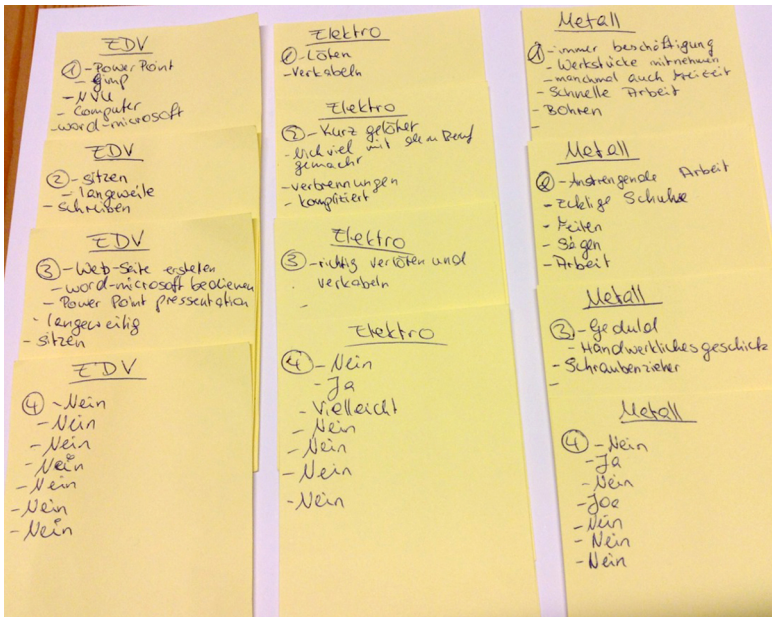 EDV
① - PowerPoint
- Gimp
- NVU
- Computer
- word-microsoft
EDV
② - sitzen
- langeweile
- Schreiben
EDV
③ - Web-Seite erstellen
- word-microsoft bedienen
- Power Point pressentation
- langeweilig
- sitzen
EDV
④ - Nein
- Nein
- Nein
- Nein
- Nein
- Nein
- Nein
Elektro
① - Löten
- Verkabeln
Elektro
② - Kurz gelötet
- Nich viel mit dem Beruf
gemacht
- verbrennungen
- kompliziert
Elektro
③ - richtig verlöten und
verkabeln
-
Elektro
④ - Nein
- Ja
- Vielleicht
- Nein
- Nein
- Nein
- Nein
Metall
① - immer beschäftigung
- Werkstücke mitnehmen
- manchmal auch Freizeit
- Schnelle Arbeit
- Bohren
-
Metall
② - Anstrengende Arbeit
- Ecklige Schuhe
- Feilen
- Sägen
- Arbeit
Metall
③ - Geduld
- Handwerkliches geschick
- Schraubenzieher
-
Metall
④ - Nein
- Ja
- Nein
- Joa
- Nein
- Nein
- Nein